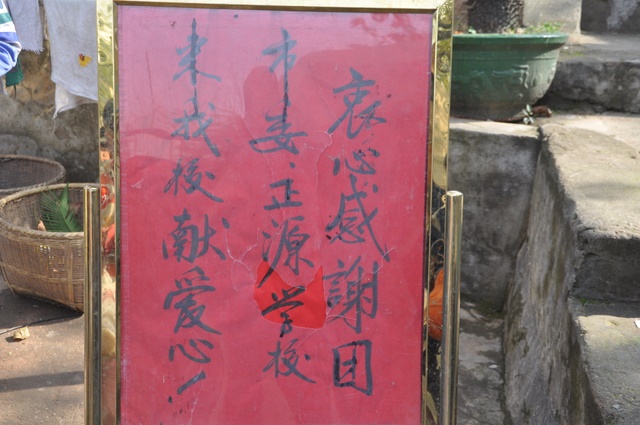 衷心感謝团
市委、正源学校
来我校献爱心！